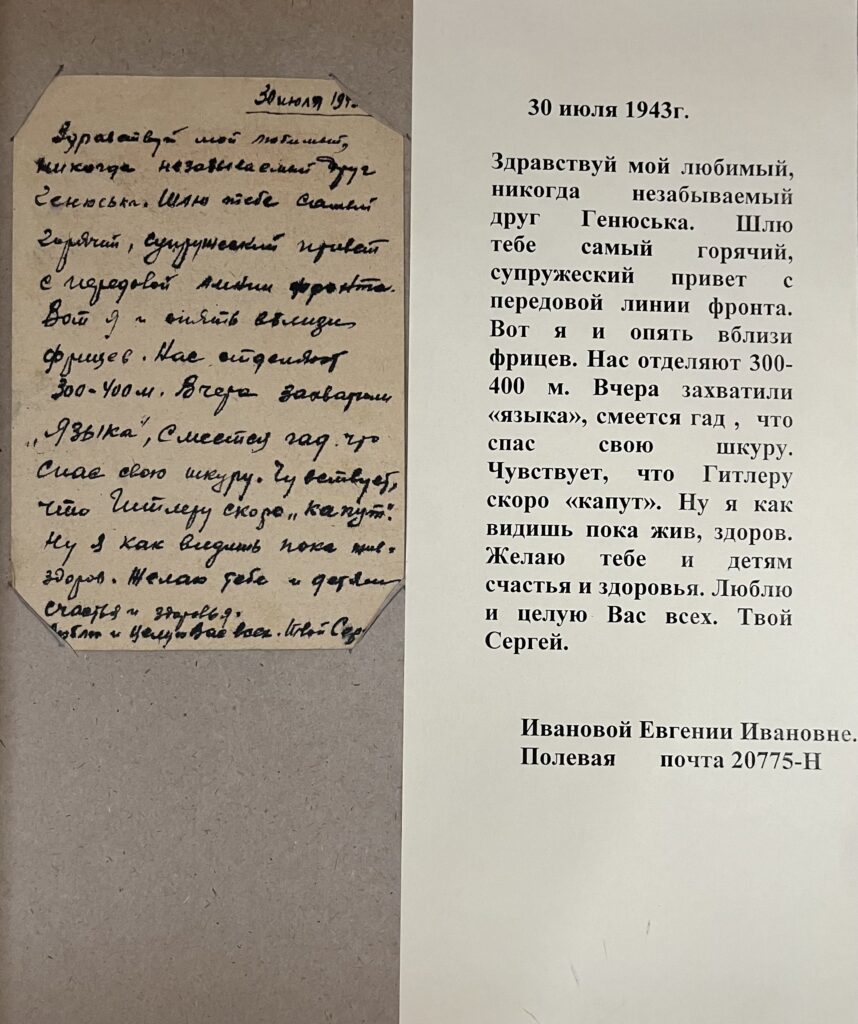 30 июля 194
Здравствуй мой любимый,
никогда незабываемый друг
Генюська. Шлю тебе самый
горячий, супружеский привет
с передовой линии фронта.
Вот я и опять вблизи
фрицев. Нас отделяют
300-400 м. Вчера захватили
„Языка", смеется гад, что
спас свою шкуру. Чувствует,
что Гитлеру скоро „капут".
Ну я как видишь пока жив-
здоров. Желаю тебе и детям
счастья и здоровья.
Люблю и целую Вас всех. Твой Сер
30 июля 1943г.
Здравствуй мой любимый,
никогда незабываемый
друг Генюська. Шлю
тебе самый горячий,
супружеский привет с
передовой линии фронта.
Вот я и опять вблизи
фрицев. Нас отделяют 300-
400 м. Вчера захватили
«языка», смеется гад , что
спас свою шкуру.
Чувствует, что Гитлеру
скоро «капут». Ну я как
видишь пока жив, здоров.
Желаю тебе и детям
счастья и здоровья. Люблю
и целую Вас всех. Твой
Сергей.
Ивановой Евгении Ивановне.
Полевая почта 20775-Н